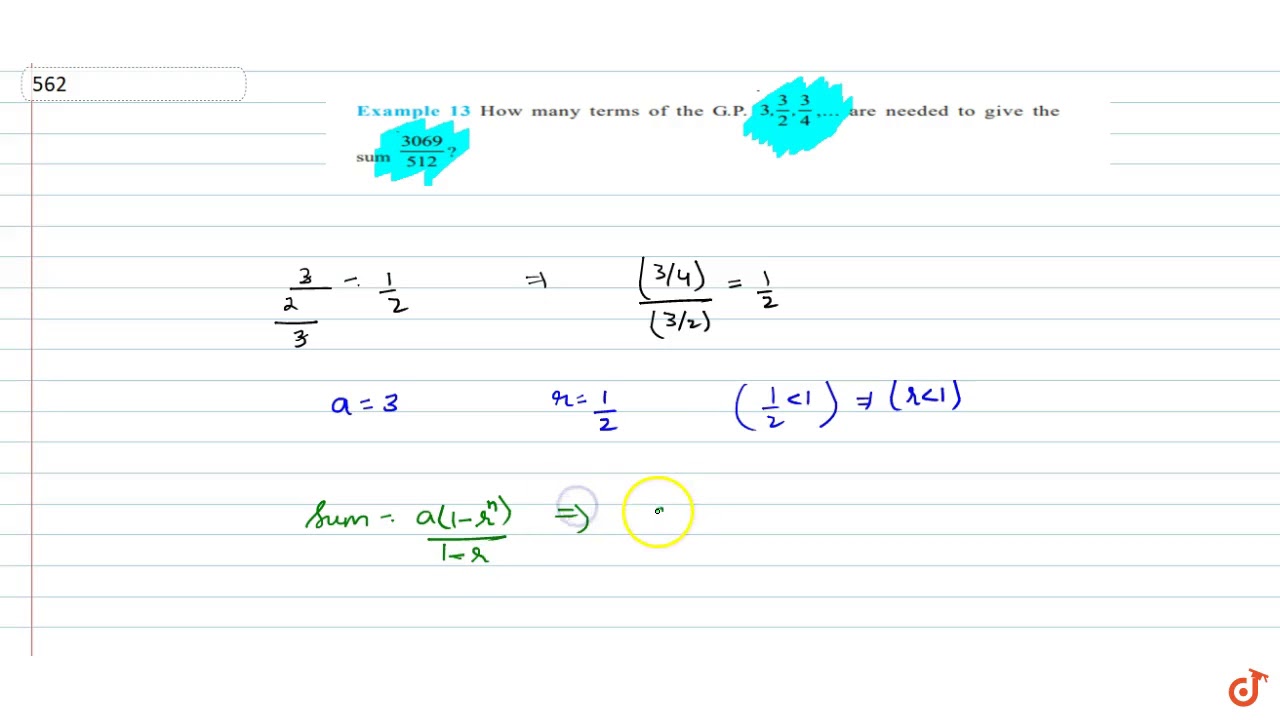 562
Example 13 How many terms of the G.P. 3, 3/2, 3/4, ... are needed to give the
sum 3069/512 ?
(3/2)/3 = 1/2 ⇒ (3/4)/(3/2) = 1/2
a = 3 r = 1/2 (1/2 < 1) ⇒ (r < 1)
Sum = a(1-r^n)/(1-r) ⇒